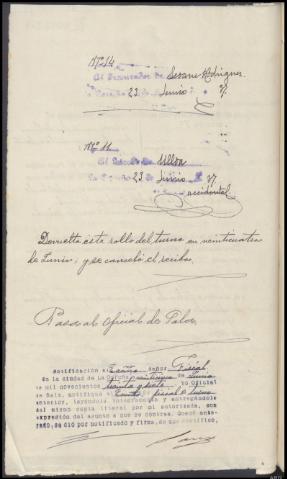 Nº 14
Al Procurador de Seoane Rodriguez
La Coruña 23 de Junio
Nº 11
de Ulloa
La Coruña 23 de Junio
accidental
Devuelto este rollo del turno en veinticuatro
de Junio, y se canceló el recibo.
Pasa al Oficial de Sala.
Notificación al señor Fiscal
En la ciudad de La Coruña
de mil novecientos treinta y siete yo Oficial
de Sala, notifiqué al Fiscal
anterior, leyéndole íntegramente y entregándole
del mismo copia literal por mi autorizada, con
expresión del asunto a que se contrae. Quedó ente-
rado, se dió por notificado y firma, de que certifico,